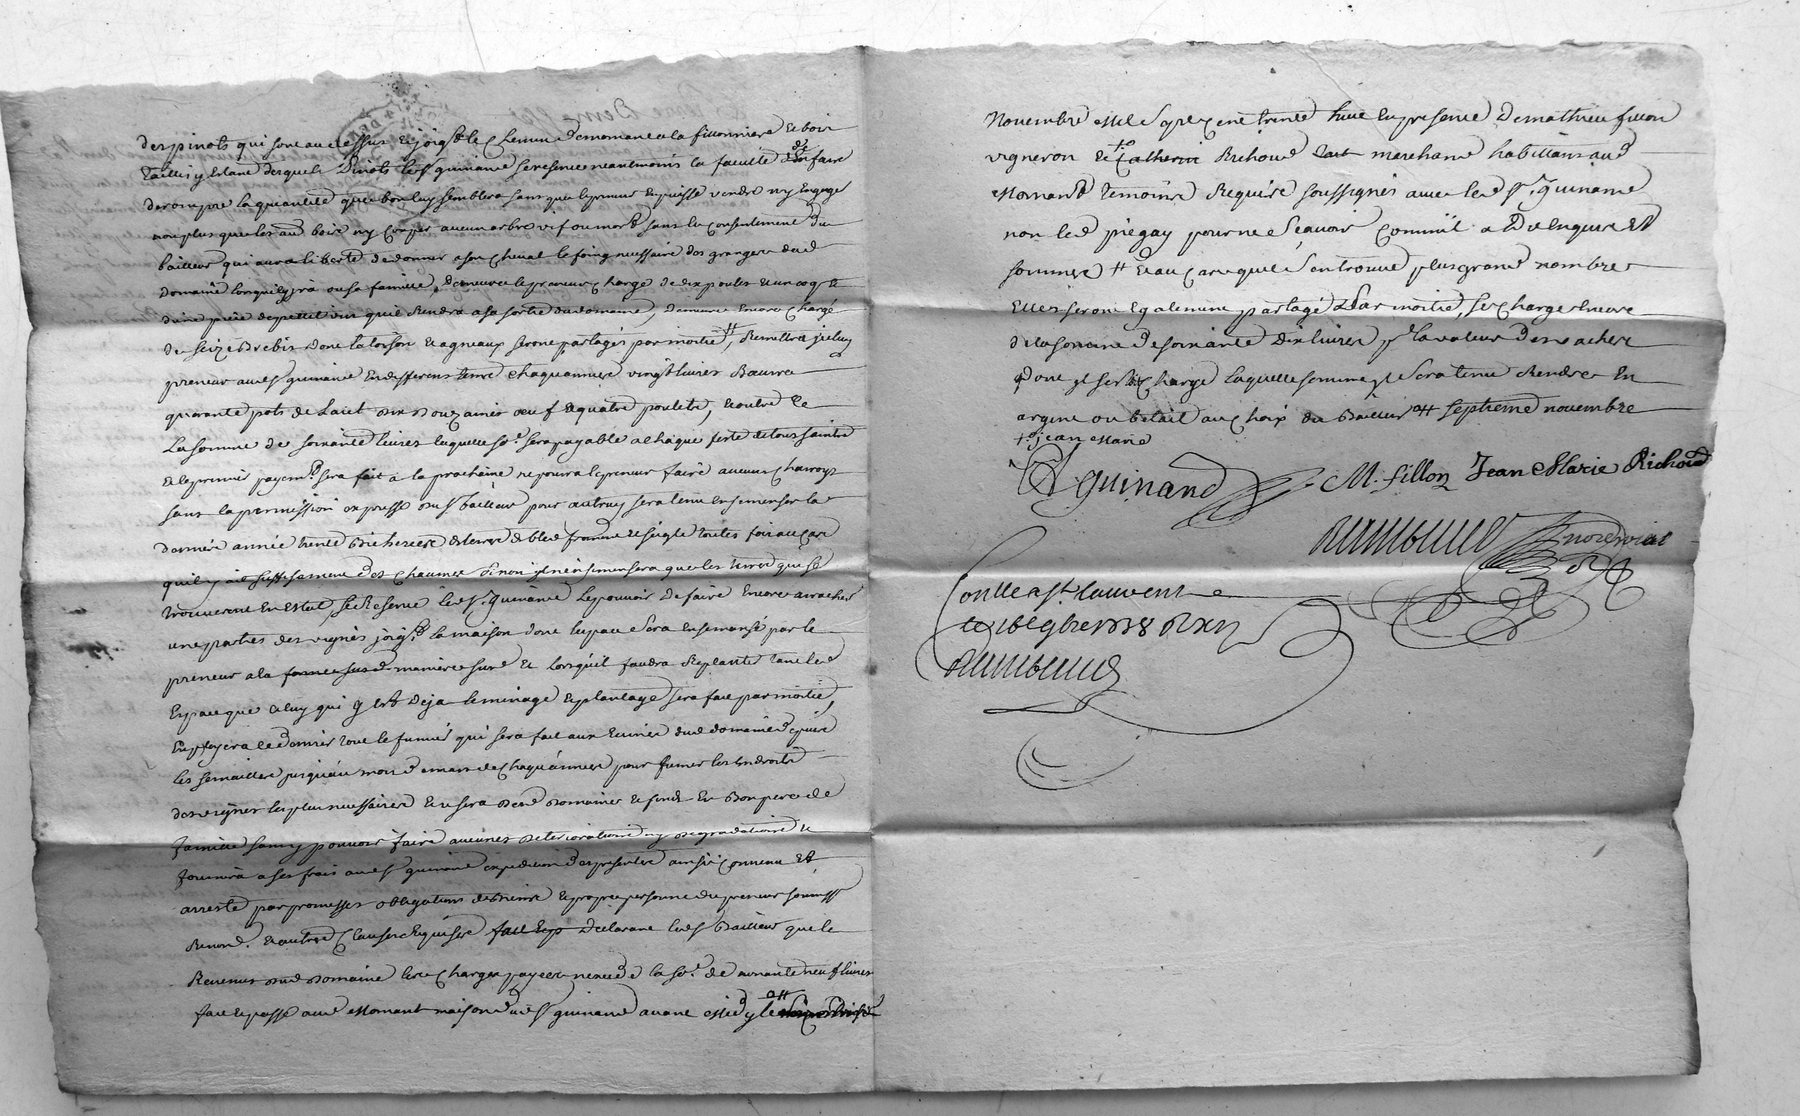 des pinots qui sont au dessus et joigt le chemin de mornant a la fillonniere et bois
taillis y estant desquels pinots led sr guinand se reserve neantmoins la faculté d'en faire
derompre la quantité que bon luy semblera sans que le preneur en puisse vendre ny engager
non plus que lesd bois ny couper aucun arbre vif ou mort sans le consentement du
bailleur qui aura liberté de donner a son cheval le foing necessaire des granges dud
domaine lorsquil yra ou sa famille, demeure le preneur chargé de dix poules et un coq et
d'une piece de petit vin quil rendra a sa sortie du domaine, demeure encore chargé
de seize brebis dont la toison et agneaux seront partagés par moitié #, remettra iceluy
preneur aud sr guinand en differens tems chaque année vingt livres beurre
quarante pots de lait six douzaines oeuf et quatre poulets, et outre ce
la somme de soixante livres laquelle so.e sera payable a chaque feste de toussaintz
et le premier payemt sera fait a la prochaine ne pourra le preneur faire aucuns charroys
sans la permission expresse dud sr bailleur pour autruy sera tenu ensemenser la
derniere année trente bicherées de terre de bled froment et seigle toutes fois au cas
quil y ait suffisament des chaumes sinon il n'ensemensera que les terres que se
trouveront en estat, se reserve led sr guinand le pouvoir de faire encore arracher
une parties des vignes joigt la maison dont l'espace sera ensemensé par le
preneur a la forme susd maniere susd et lorsquil faudra replanter tant led
espace que celuy qui y est deja le minage et plantage sera fait par moitié,
employera led dernier tout le fumier qui sera fait aux ecuries dud domaine depuis
les semailles jusqu'au mois de mars de chaque année pour fumer les endroits
des vignes les plus necessaires et usera desd domaine et fonds en bon pere de
famille sans y pouvoir faire aucunes deteriorations ny degradations et
fournira a ses frais aud sr guinand expedition des presentes ainsi convenu et
aresté par promesses obligations de biens et propre personne du preneur soumiss
renond. et autres clauses requises fait et ps declarant led sr bailleur que le
revenus dud domaine les charges payées nexcede la so.e de quarante neuf livres
fait et passé aud mornant maison dud sr guinand avant midy le
novembre mil sept cent trente huit en presence de mathieu fillon
vigneron et +o Catherin Richoud marchand habittans aud
mornant temoins requis et soussignés avec led sr guinand
non led piegay pour ne sçavoir comm'il a dit enquis et
sommer # et au cas que s'en trouve plus grand nombre
elles seront egalement partagé par moitié, se charge encore
de la somme de soixante dix livres pr la valeur des vaches
dont il sera chargé laquelle somme il sera tenu rendre en
argent ou betail au choix du bailleur att septieme novembre
+o jean marie
Guinand M. fillon Jean Marie Richoud
Conllé a St Laurent
le 16e 9bre 1738